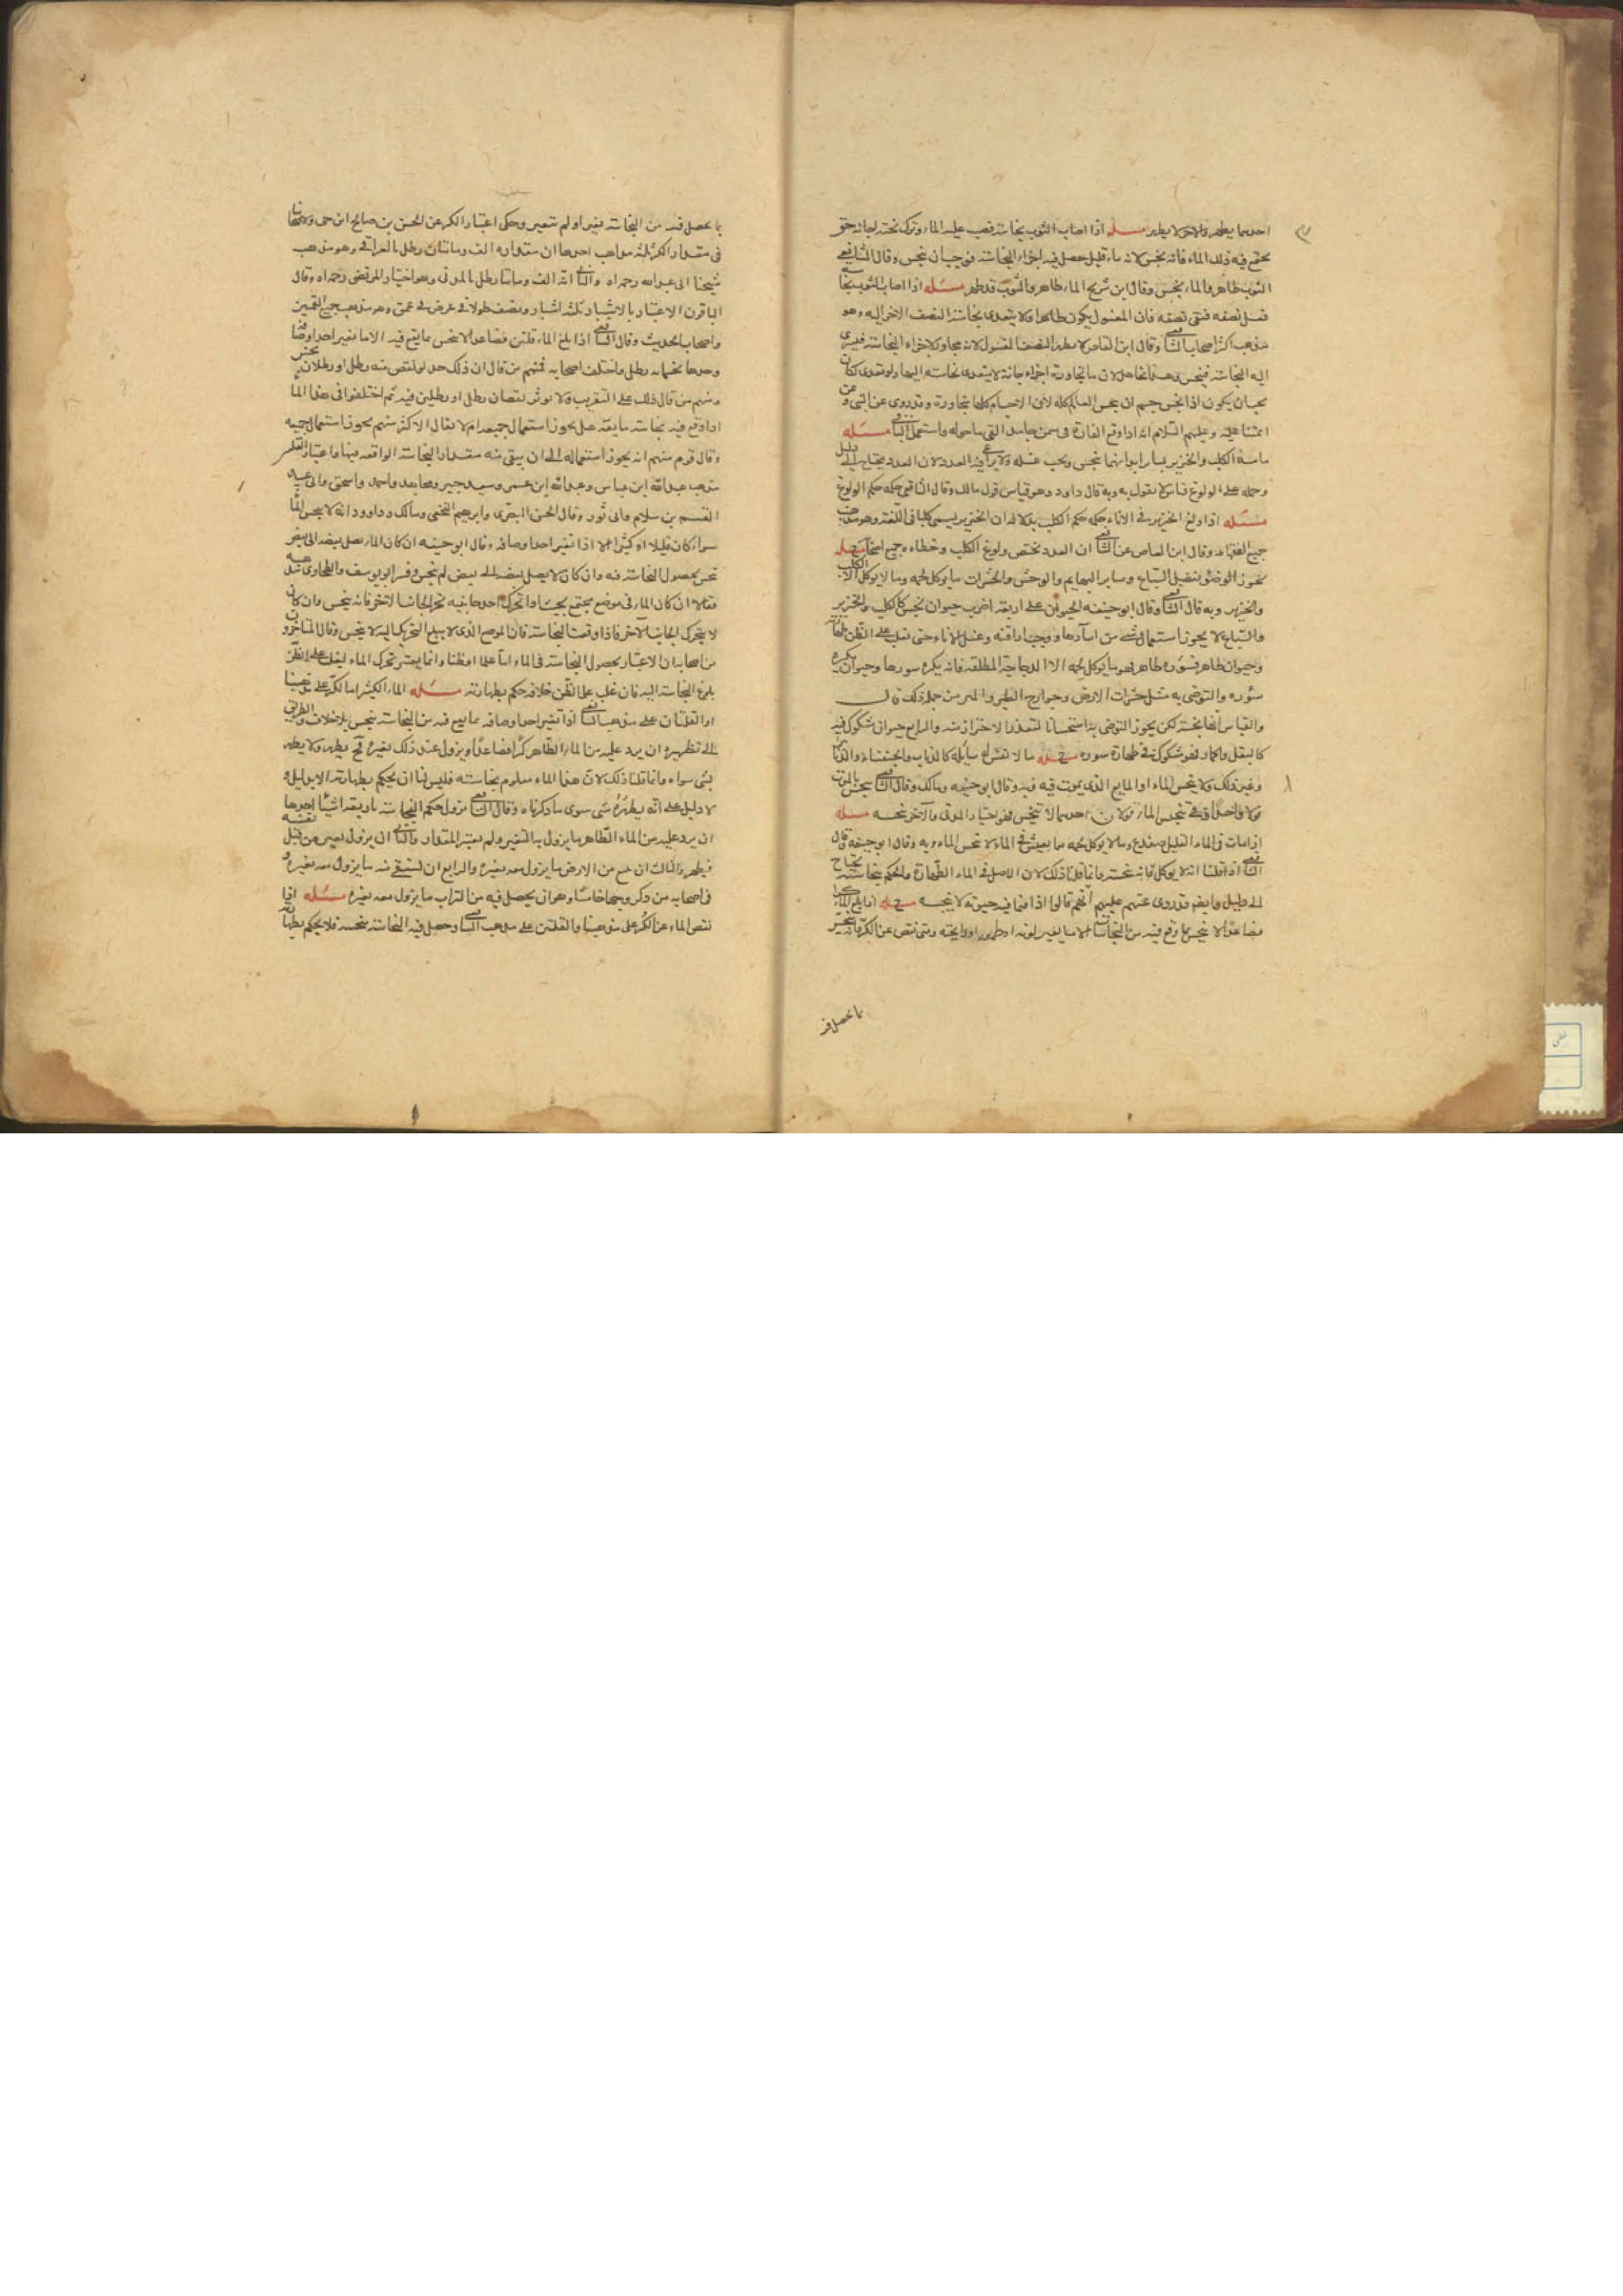 احدهما يطهر والاخر لا يطهر مسئله اذا اصاب الثوب نجاسة فصب عليه الماء وترك تحته اجانة حتى
يجتمع فيه ذلك الماء فانه نجس لانه ماء قليل حصل فيه اجزاء النجاسة فوجب ان ينجس وقال الشافعي
الثوب طاهر والماء نجس وقال ابن شريح الماء طاهر والثوب قد طهر مسئله اذا اصاب الثوب نجاسة
فغسل نصفه فبقي نصفه فان المغسول يكون طاهرا ولا يتعدى نجاسة النصف الاخر اليه وهو
مذهب اكثر اصحاب الشافعي وقال ابن القاص لا يطهر النصف المغسول لانه مجاور لاجزاء النجاسة فيسري
اليه النجاسة فينجس وهذا باطل لان ما يجاوره اجزاء جافة لا يتعدى نجاسته اليها ولو تعدى لكان
يجب ان يكون اذا نجس جسم ان ينجس العالم كله لان الاجسام كلها متجاورة وقد روي عن النبي وعن
ائمتنا عليه وعليهم السلام انه اذا وقع الفارة في سمن جامد القي ما حوله واستعمل الباقي مسئله
ما مسه الكلب والخنزير بسائر ابدانهما ينجس ويجب غسله ولا يراعى فيه العدد لان العدد يحتاج الى دليل
وحمله على الولوغ قياس لا نقول به وبه قال داود وهو قياس قول مالك وقال الشافعي حكمه حكم الولوغ
مسئله اذا ولغ الخنزير في الاناء حكمه حكم الكلب بدلالة ان الخنزير يسمى كلبا في اللغة وهو مذهب
جميع الفقهاء وقال ابن القاص عن الشافعي ان العدد يختص ولوغ الكلب وخطاه جميع اصحابه مسئله
يجوز الوضوء بفضل السباع وساير البهايم والوحش والحشرات ما يوكل لحمه وما لا يوكل الا الكلب
والخنزير وبه قال الشافعي وقال ابو حنيفه الحيوان على اربعة اضرب حيوان نجس كالكلب والخنزير
والسباع لا يجوز استعمال شيء من اسآرها ووجب اراقته وغسل الاناء حتى يغلب على الظن طهارته
وحيوان طاهر فسوره طاهر وهو ما يوكل لحمه الا الدجاجة المطلقه فانه يكره سورها وحيوان يكره
سوره والتوضي به مثل حشرات الارض وجوارح الطير والهر من جملة ذلك قال
والقياس انها نجسة لكن يجوز التوضي به استحسانا لتعذر الاحتراز منه والرابع حيوان مشكوك فيه
كالبغل والحمار فهو مشكوك في طهارة سوره مسئله ما لا نفس له سايلة كالذباب والخنفساء والزنابير
وغير ذلك ولا ينجس الماء او المايع الذي يموت فيه وبه قال ابو حنيفه ومالك وقال الشافعي ينجس بالموت
قولا واحدا وفي تنجس الماء قولان احدهما لا ينجس وهو اختيار المزني والآخر نجسه مسئله
اذا مات في الماء القليل ضفدع وما لا يوكل لحمه مما يعيش في الماء لا ينجس الماء وبه قال ابو حنيفه وقال
الشافعي اذا قلنا انه لا يوكل فانه نجسه وانما قلنا ذلك لان الاصل في الماء الطهارة والحكم بنجاسته يحتاج
الى دليل وايضا قد روي عنهم عليهم انهم قالوا اذا مات فيه حيوته لا ينجسه مسئله اذا بلغ الماء كرا
فصاعدا لا ينجس بما وقع فيه من النجاسات الا ما يغير لونه او طعمه او رايحته ومتى نقص عن الكر فانه ينجس
بما يحصل فيه
بما يحصل فيه من النجاسة تغير او لم يتغير وحكى اعتبار الكر عن الحسن بن صالح ابن حي ولاصحابنا
في مقدار الكر ثلثه مذاهب احدها ان مقداره الف ومائتان رطل بالعراقي وهو مذهب
شيخنا ابي عبد الله رحمه الله والثاني انه الف ومائتا رطل بالمدني وهو اختيار المرتضى رحمه الله وقال
الباقون الاعتبار بالاشبار ثلثة اشبار ونصف طولا في عرض في عمق وهو مذهب جميع القميين
واصحاب الحديث وقال الشافعي اذا بلغ الماء قلتين فصاعدا لا ينجس بما يقع فيه الا ما تغير احد اوصافه
وحدها بخمسمائه رطل واختلف اصحابه فمنهم من قال ان ذلك حد لو نقص منه رطل او رطلان نجس
ومنهم من قال ذلك على التقريب ولا يوثر نقصان رطل او رطلين فيه ثم اختلفوا في هذا الماء
اذا وقع فيه نجاسة مايعة هل يجوز استعمال جميعه ام لا فقال الاكثر منهم يجوز استعمال جميعه
وقال قوم منهم انه يجوز استعماله الى ان يبقى منه مقدار النجاسة الواقعة فيها واعتبار القلتين
مذهب عبد الله ابن عباس وعبد الله ابن عمر وسعيد جبير ومجاهد واحمد واسحق وابي عبيد
القسم بن سلام وابي ثور وقال الحسن البصري وابرهيم النخعي ومالك وداود انه لا ينجس الماء
سواء كان قليلا او كثيرا الا اذا تغير احد اوصافه وقال ابو حنيفه ان كان الماء يصل بعضه الى بعض
نجس بحصول النجاسة فيه وان كان لا يصل بعضه الى بعض لم ينجس وفسر ابو يوسف والطحاوي مذهبه
فقالا ان كان الماء في موضع مجتمع بحيث اذا تحرك احد جانبيه تحرك الجانب الاخر فانه ينجس وان كان
لا يتحرك الجانب الآخر فاذا وقعت النجاسة فان الموضع الذي لا يبلغ التحريك اليه لا ينجس وقال المتاخرون
من اصحابه ان الاعتبار بحصول النجاسة في الماء اما علما او ظنا وانما يعتبر تحرك الماء ليغلب على الظن
بلوغ النجاسة اليه فان غلب على الظن خلافه حكم بطهارته مسئله الماء الكثير اما الكر على مذهبنا
او القلتان على مذهب الشافعي اذا تغير احد اوصافه بما يقع فيه من النجاسة ينجس بلا خلاف والطريق
الى تطهيره ان يرد عليه من الماء الطاهر كرا فصاعدا ويزول عند ذلك تغيره فح يطهر ولا يطهر
بشي سواه وانما قلنا ذلك لان هذا الماء معلوم نجاسته فليس لنا ان نحكم بطهارته الا بدليل و
لا دليل على انه يطهره شي سوى ما ذكرناه وقال الشافعي يزول حكم النجاسة باربعة اشيا احدها
ان يرد عليه من الماء الطاهر ما يزول به التغير ولم يعتبر المقدار والثاني ان يزول تغيره من قبل نفسه
فيطهر والثالث ان ينبع من الارض ما يزول معه تغيره والرابع ان يستقي منه ما يزول معه تغيره و
في اصحابه من ذكر وجها خامسا وهو ان يحصل فيه من التراب ما يزول معه تغيره مسئله اذا
نقص الماء عن الكر على مذهبنا والقلتين على مذهب الشافعي وحصل فيه النجاسة ينجس فلا يحكم بطهارته